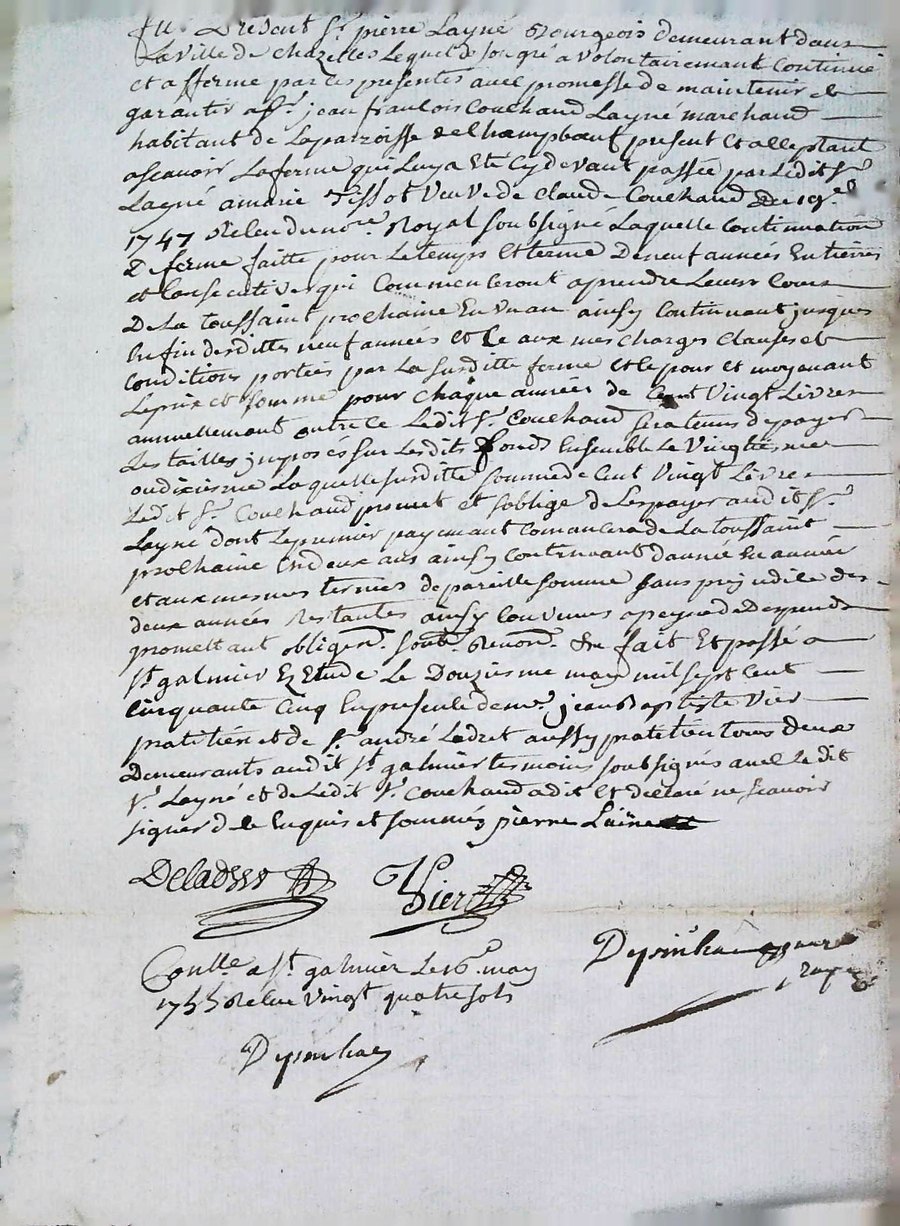 fut Present Sr. pierre Layné Bourgeois demeurant dans
La ville de chazelles Lequel de son gré a volontairemant Continué
et afferme par ces presentes avec promesse de maintenir et
garantir a Sr. jean francois Couchaud Layné marchand
habitant de La parroisse de champbœuf present et acceptant
ascavoir La ferme qui Luy a Eté Cy devant passée par Ledit Sr.
Layné a marie Tissot Veuve de Claude Couchaud
1747 Receu du nore. Royal soubsigné Laquelle Continuation
de ferme faitte pour Le temps Et terme De neuf années Entieres
et Consecutives qui Commenceront a prendre Leur Cours
De La toussaint prochaine En un an ainsy Continuant jusques
En fin desdittes neuf années et Ce aux mes charges Clauses et
Conditions portées par La susditte ferme et Ce pour et moyenant
Le prix et somme pour chaque années de Cent Vingt Livres
annuellemant outre ce Ledit Sr. Couchaud sera tenu de payer
Les tailles jmposés sur Lesdits fonds Ensemble Le Vingtiesme
ou dixiesme Laquelle susditte somme de Cent Vingt Livres
Ledit Sr. Couchaud promet et soblige de Les payer audit Sr.
Layné dont Le premier payemant Comancera de La toussaint
prochaine En deux ans ainsy Continuant dannée En année
et aux mesmes termes de pareille somme sans prejudice des
deux années Restantes ainsy Convenus a peyne de Depends
promettant obligen. soubn. Renon. fait Et passé a
St. galmier Ez Etude Le Douziesme may mil sept Cent
Cinquante Cinq En presence de me. jean Baptiste Vier
pratitien et de Sr. andré aussy pratitien tous deux
Demeurants audit St. galmier temoins soubsignés avec Ledit
Sr. Layné et de Ledit Sr. Couchaud a dit Et declaré ne scavoir
signer de ce Enquis et sommés pierre Laine
Vier
Conlle a St. galmier Le 16e. may
1755 Receu Vingt quatre sols